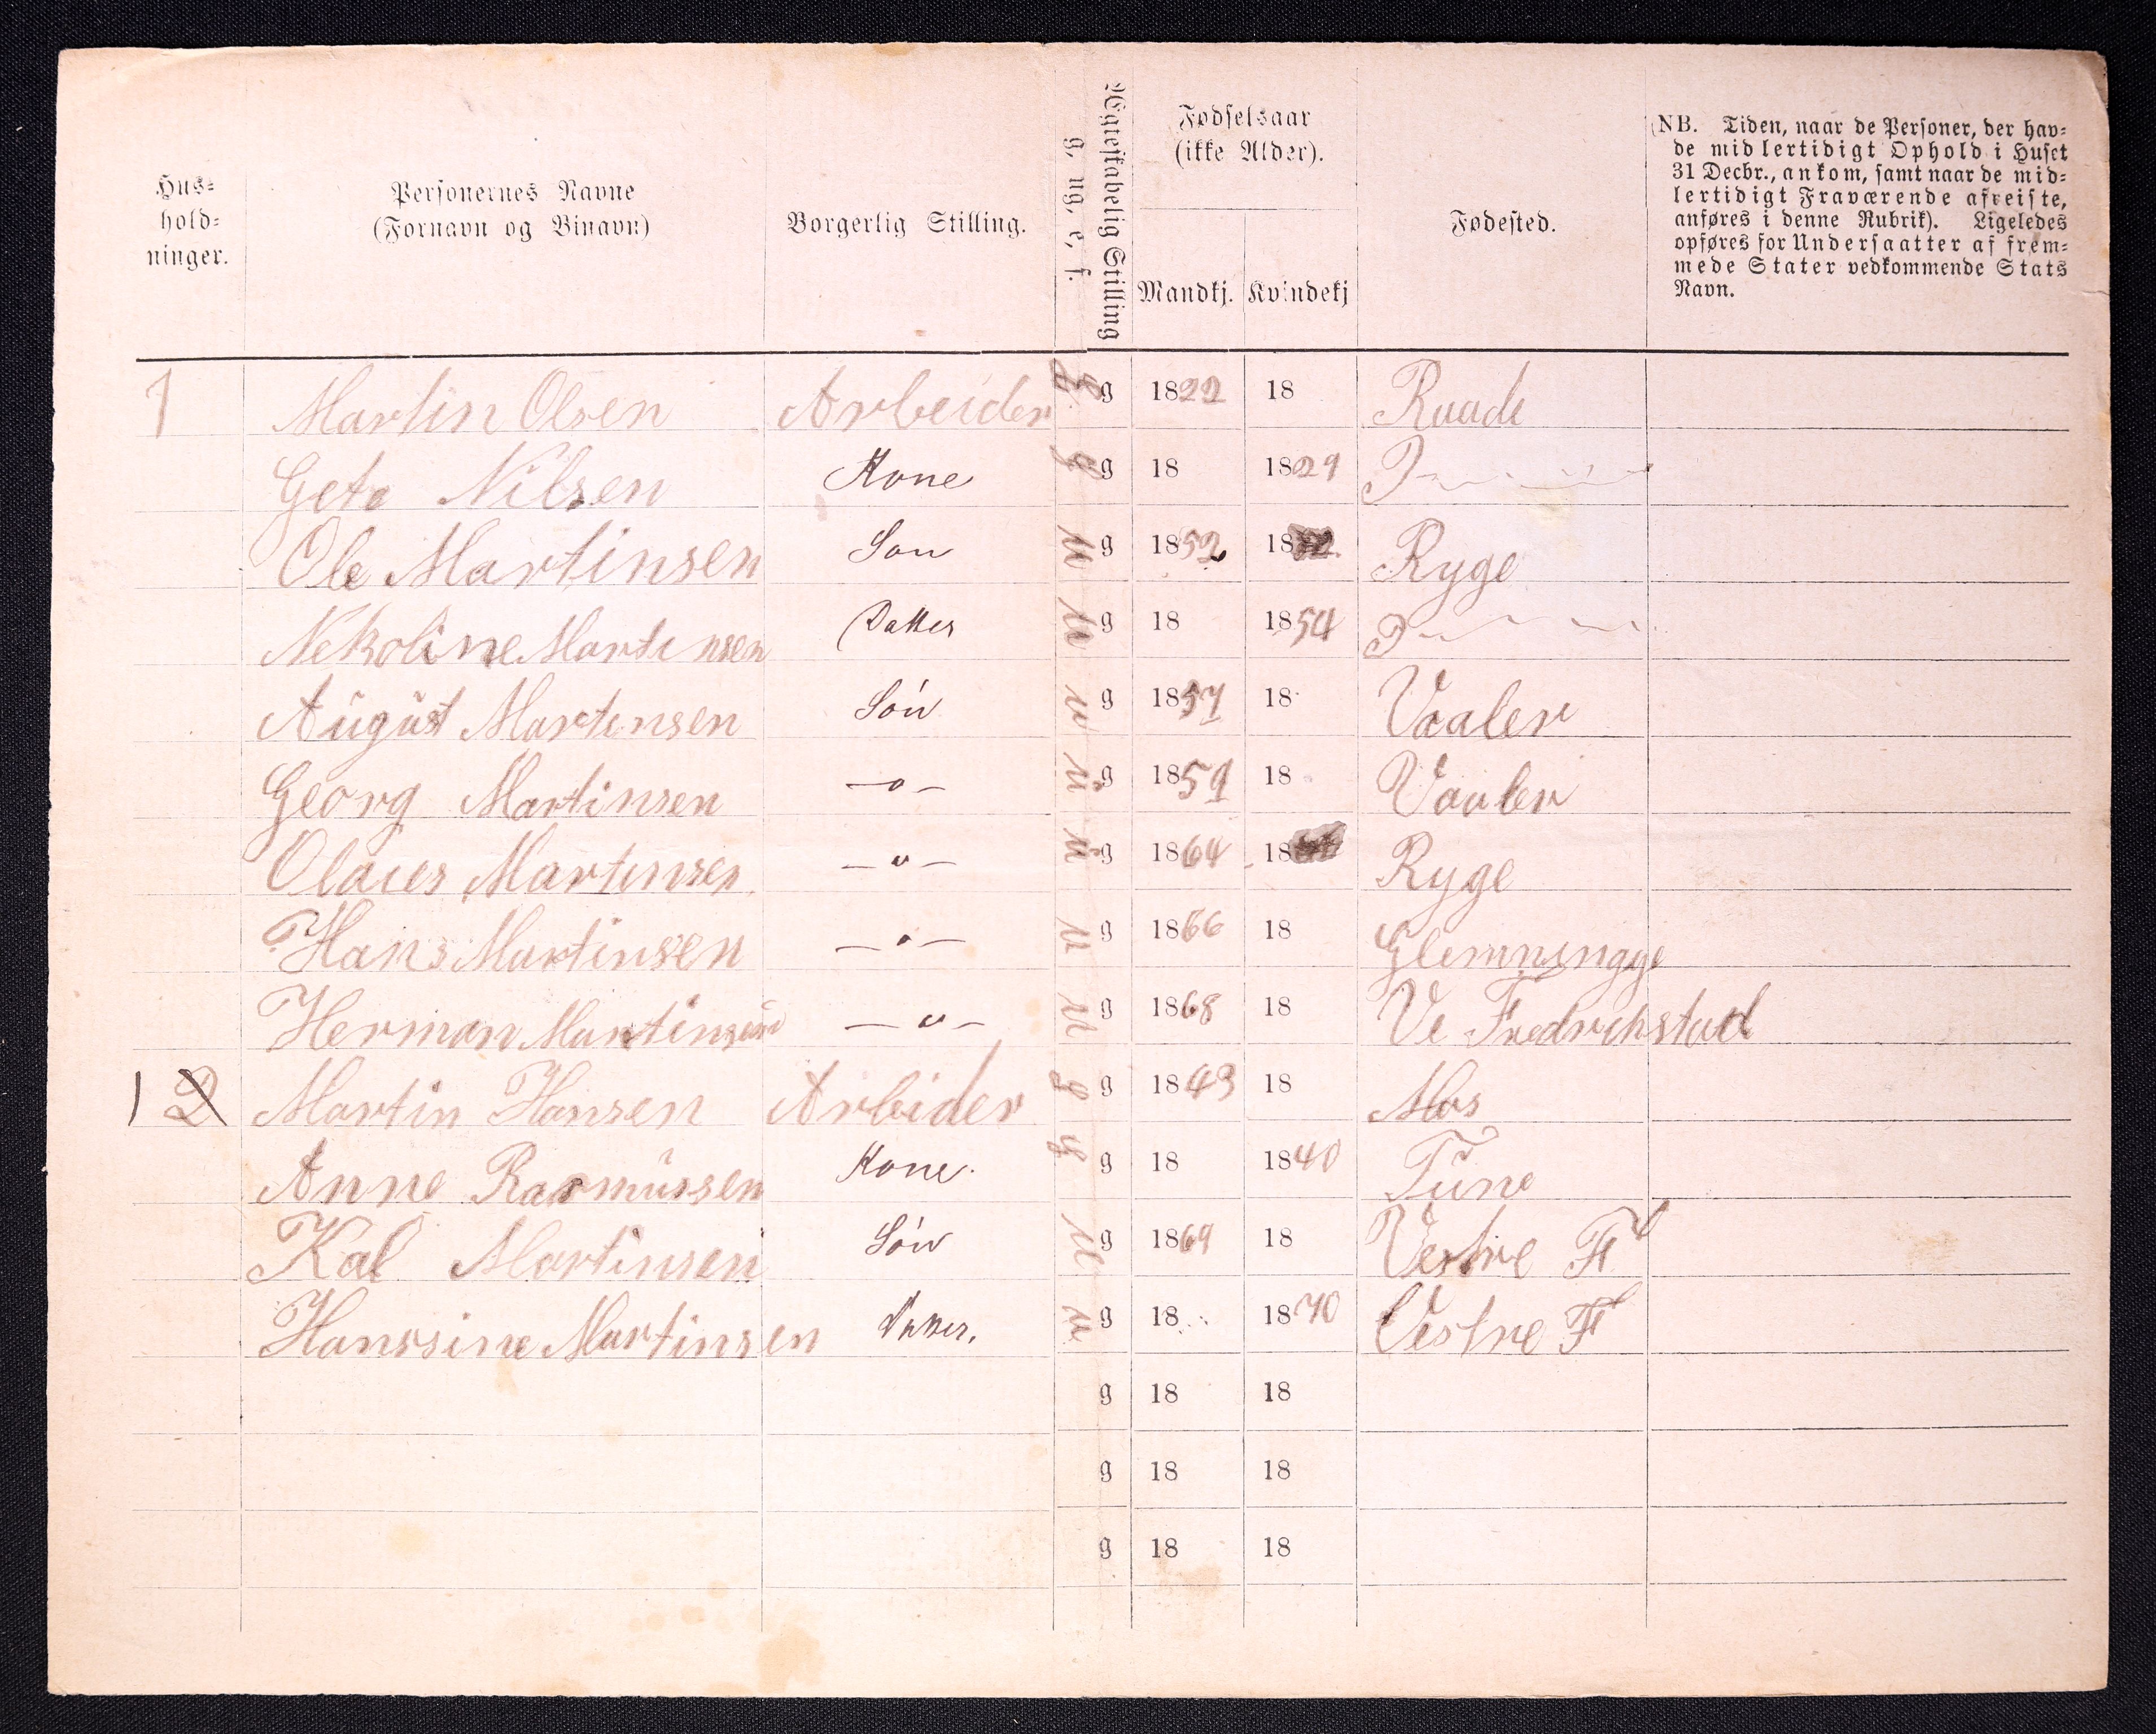 Hus-
hold-
ninger.
Personernes Navne
(Fornavn og Binavn)
Borgerlig Stilling.
Ægteskabelig Stilling
g. ug. e. f.
Fødselsaar
(ikke Alder).
Mandkj. Kvindekj
Fødested.
NB. Tiden, naar de Personer, der hav-
de midlertidigt Ophold i Huset
31 Decbr., ankom, samt naar de mid-
lertidigt Fraværende afreiste,
anføres i denne Rubrik). Ligeledes
opføres for Undersaatter af frem-
mede Stater vedkommende Stats
Navn.
1 Martin Olsen Arbeider g g 1822 18 Raade
Geta Nilsen Kone g g 18 1829
Ole Martinsen Son u g 1852 18 Ryge
Nekoline Martinsen Datter u g 18 1854
August Martensen Sön u g 1857 18 Vaaler
Georg Martinsen —"— u g 1859 18 Vaaler
Olaus Martinsen —"— u g 1864 18 Ryge
Hans Martinsen —"— u g 1866 18 Glemningge
Herman Martinsen —"— u g 1868 18 Ve Fredrikstad
1 2 Martin Hansen Arbider g g 1843 18 Mos
Anne Rasmussen Kone. g g 18 1840 Tune
Kal Martinsen Sön u g 1869 18 Vestre Fr
Hanssine Martinsen Datter. u g 18 1870 Vestre F
g 18 18
g 18 18
g 18 18